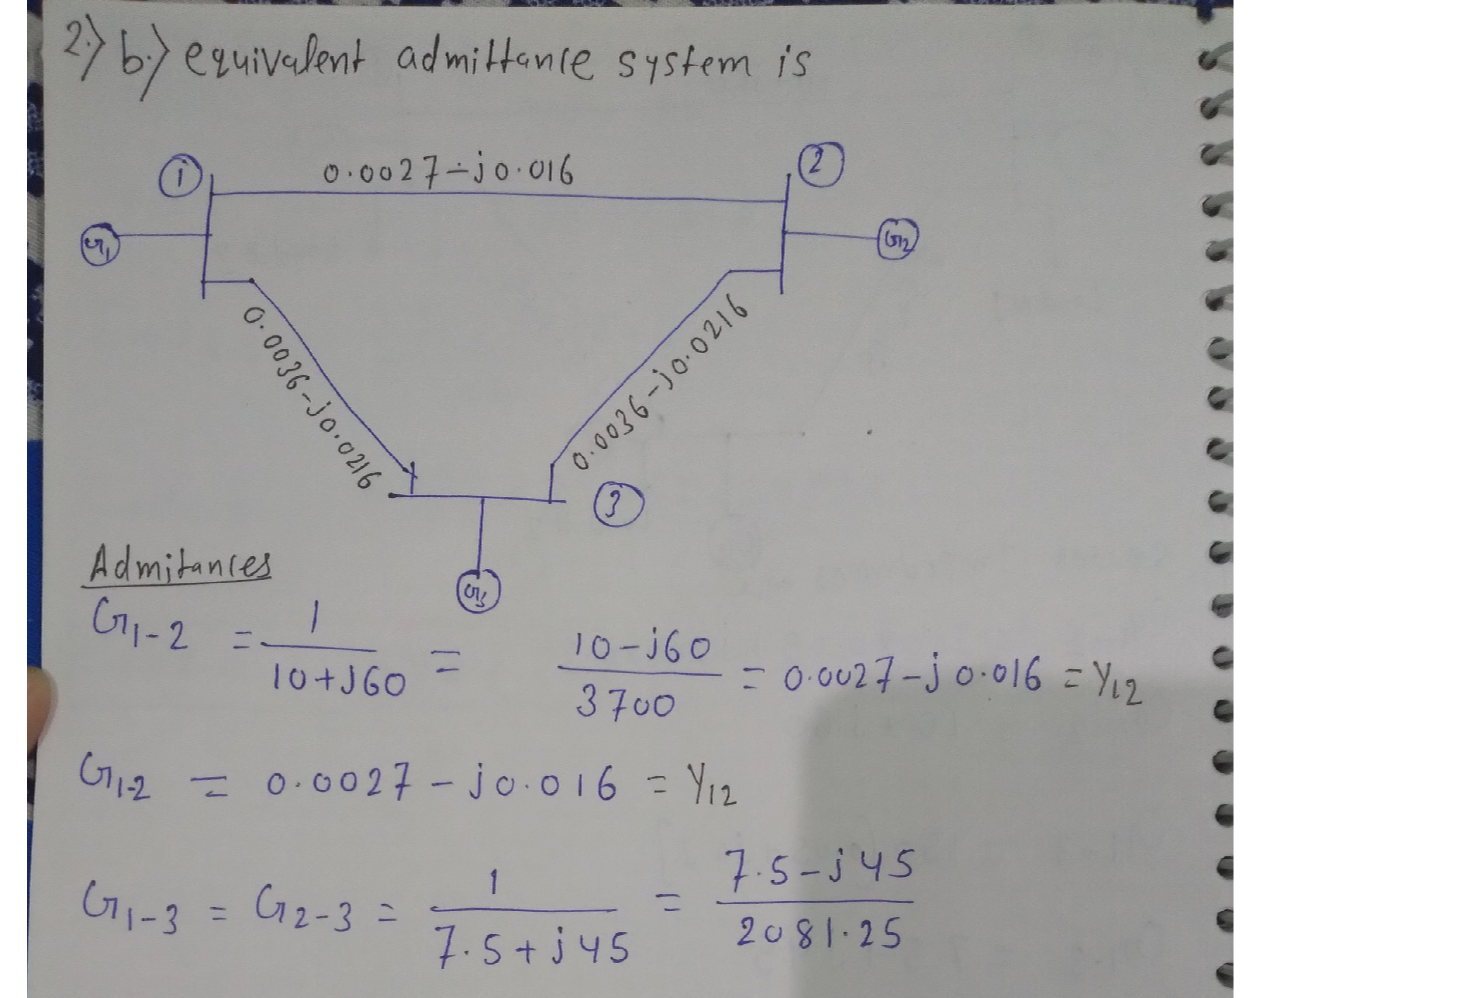 2.) b.) equivalent admittance system is
① 0.0027-j0.016 ②
G1 G2
0.0036-j0.0216 0.0036-j0.0216
③
G3
Admitances
G1-2 = 1/(10+J60) = (10-j60)/3700 = 0.0027-j0.016 = Y12
G1-2 = 0.0027-j0.016 = Y12
G1-3 = G2-3 = 1/(7.5+j45) = (7.5-j45)/2081.25